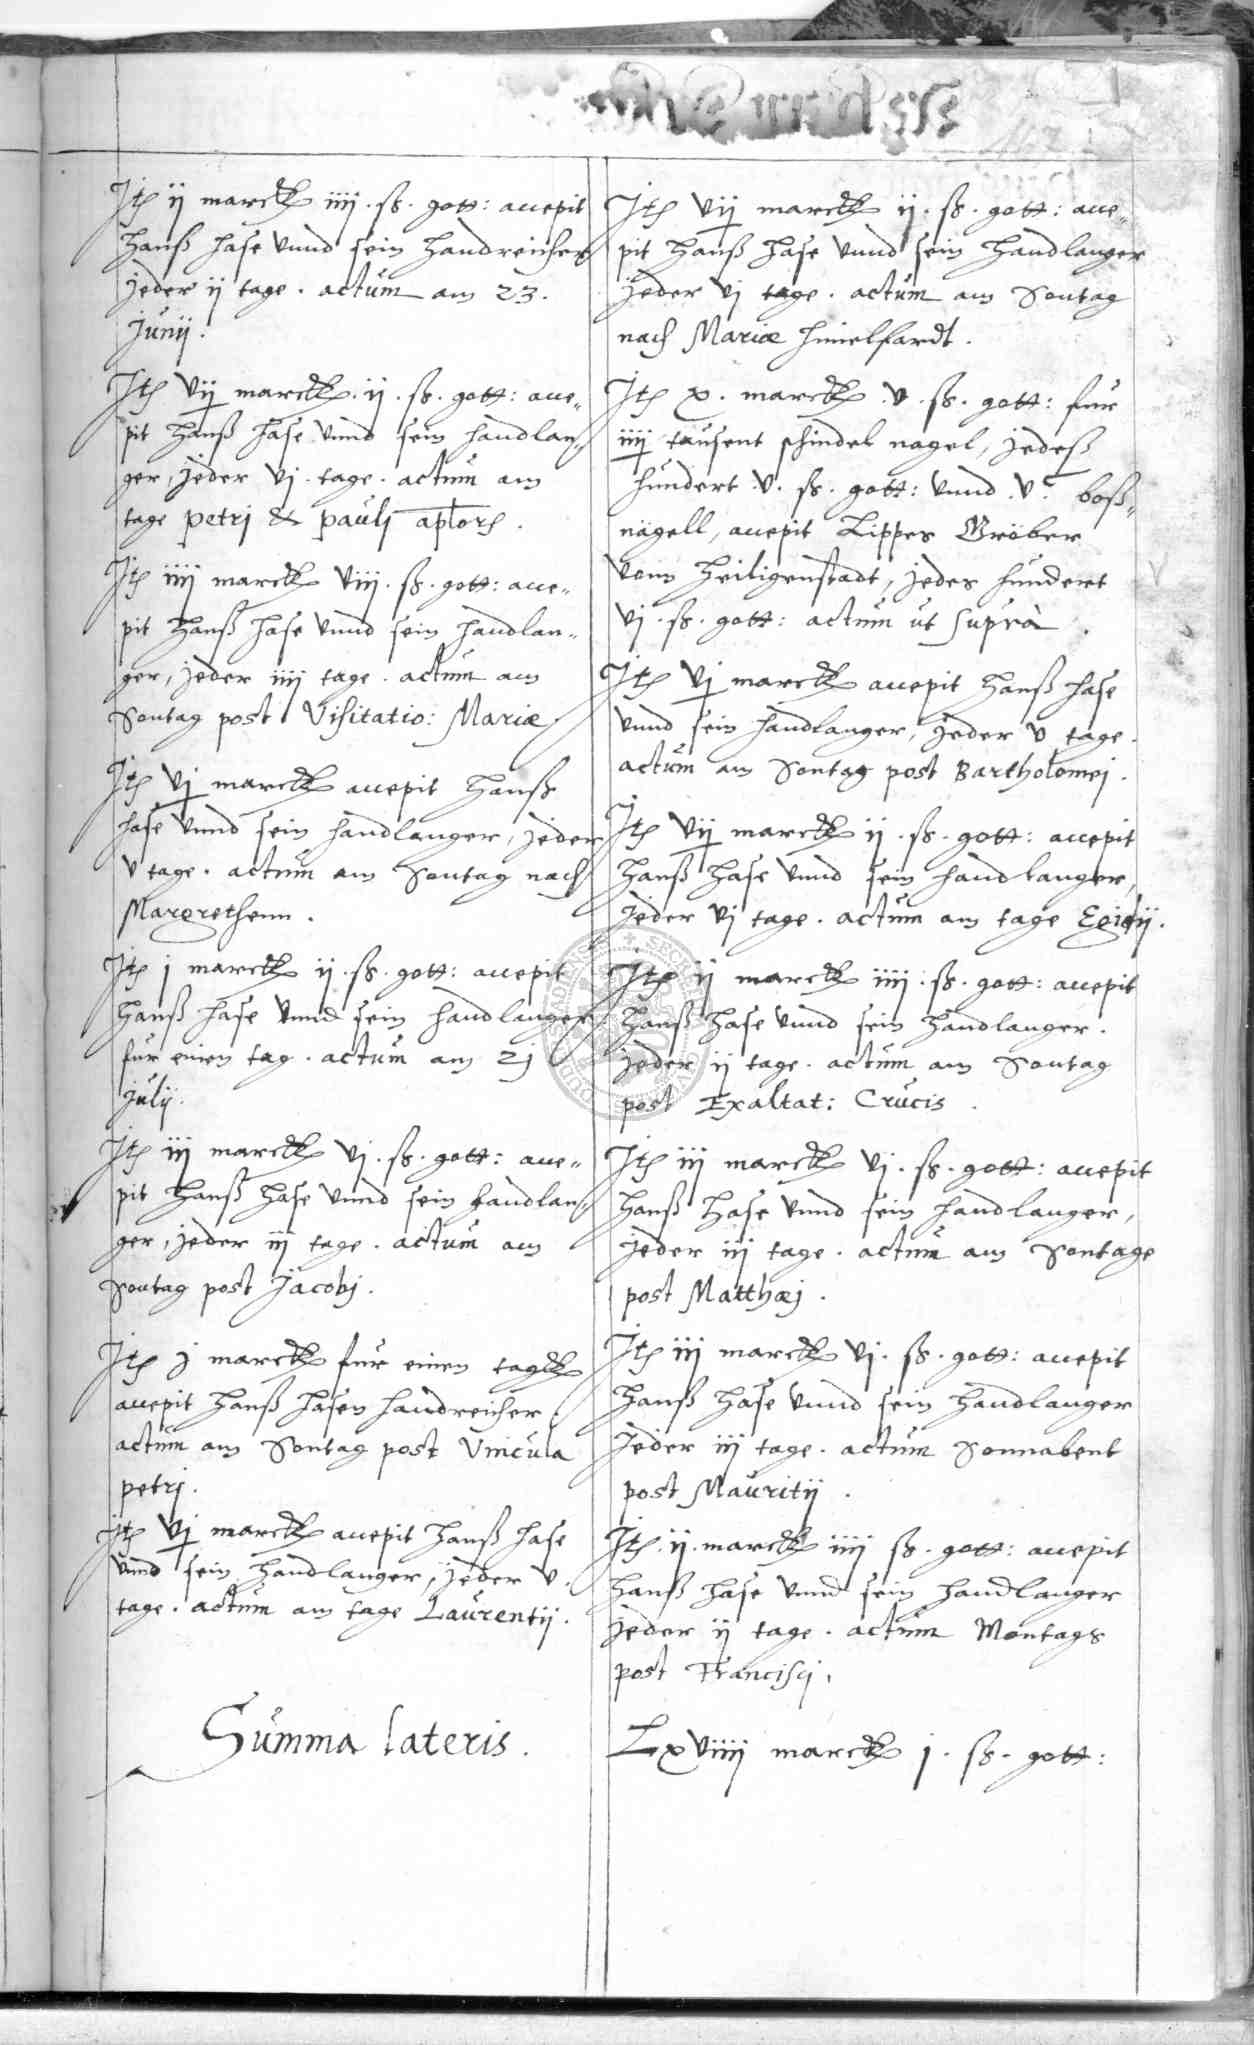 Ite ij marck iiij. ß. gott: accepit
Hanß Hase vnnd sein handreicher
jeder ij tage. actum am 23.
Junij.
Ite vij marck. ij. ß. gott: acce„
pit Hanß Hase vnnd sein handlan„
ger, jeder vj. tage. actum am
tage Petrj & Paulj aplor.
Ite iiij marck viij. ß. gott: acce„
pit Hanß Hase vnnd sein handlan„
ger, jeder iiij tage. actum am
Sontag post Visitatio: Mariæ
Ite vj marck accepit Hanß
Hase vnnd sein handlanger, jeder
v tage. actum am Sontag nach
Margrethenn.
Ite j marck ij. ß. gott: accepit
Hanß Hase vnnd sein handlanger
fur einen tag. actum am 21
Julij.
Ite iij marck vj. ß. gott: acce„
pit Hanß Hase vnnd sein handlan„
ger, jeder iij tage. actum am
Sontag post Jacobj.
Ite j marck fur einen tagk
accepit Hanß Hasen handreicher.
actum am Sontag post Vincula
Petrj.
Ite vj marck accepit Hanß Hase
vnnd sein handlanger, jeder v.
tage. actum am tage Laurentij.
Summa lateris.
Ite vij marck ij. ß. gott: acce„
pit Hanß Hase vnnd sein Handlanger
jeder vj tage. actum am Sontag
nach Mariæ himelfardt.
Ite x. marck .v. ß. gott: fur
iiij tausent schindel nagel, jedeß
hundert .v. ß. gott: vnnd .v. boß„
nägell, accepit Lippes Gröber
vonn Heiligenstadt, jedes hundert
vj. ß. gott: actum ut suprà.
Ite vj marck accepit Hanß Hase
vnnd sein handlanger, jeder v tage.
actum am Sontag post Bartholomej.
Ite vij marck ij. ß. gott: accepit
Hanß Hase vnnd sein handlanger,
jeder vj tage. actum am tage Egidij.
Ite ij marck iiij. ß. gott: accepit
Hanß Hase vnnd sein Handlanger.
jeder ij tage. actum am Sontag
post Exaltat: Crucis.
Ite iij marck vj. ß. gott: accepit
Hanß Hase vnnd sein handlanger,
jeder iij tage. actum am Sontage
post Matthæj.
Ite iij marck vj. ß. gott: accepit
Hanß Hase vnnd sein Handlanger
jeder iij tage. actum Sonnabent
post Mauritij.
Ite. ij. marck iiij ß. gott: accepit
Hanß Hase vnnd sein handlanger
jeder ij tage. actum Montags
post Francisci.
Lxviiij marck j. ß. gott: